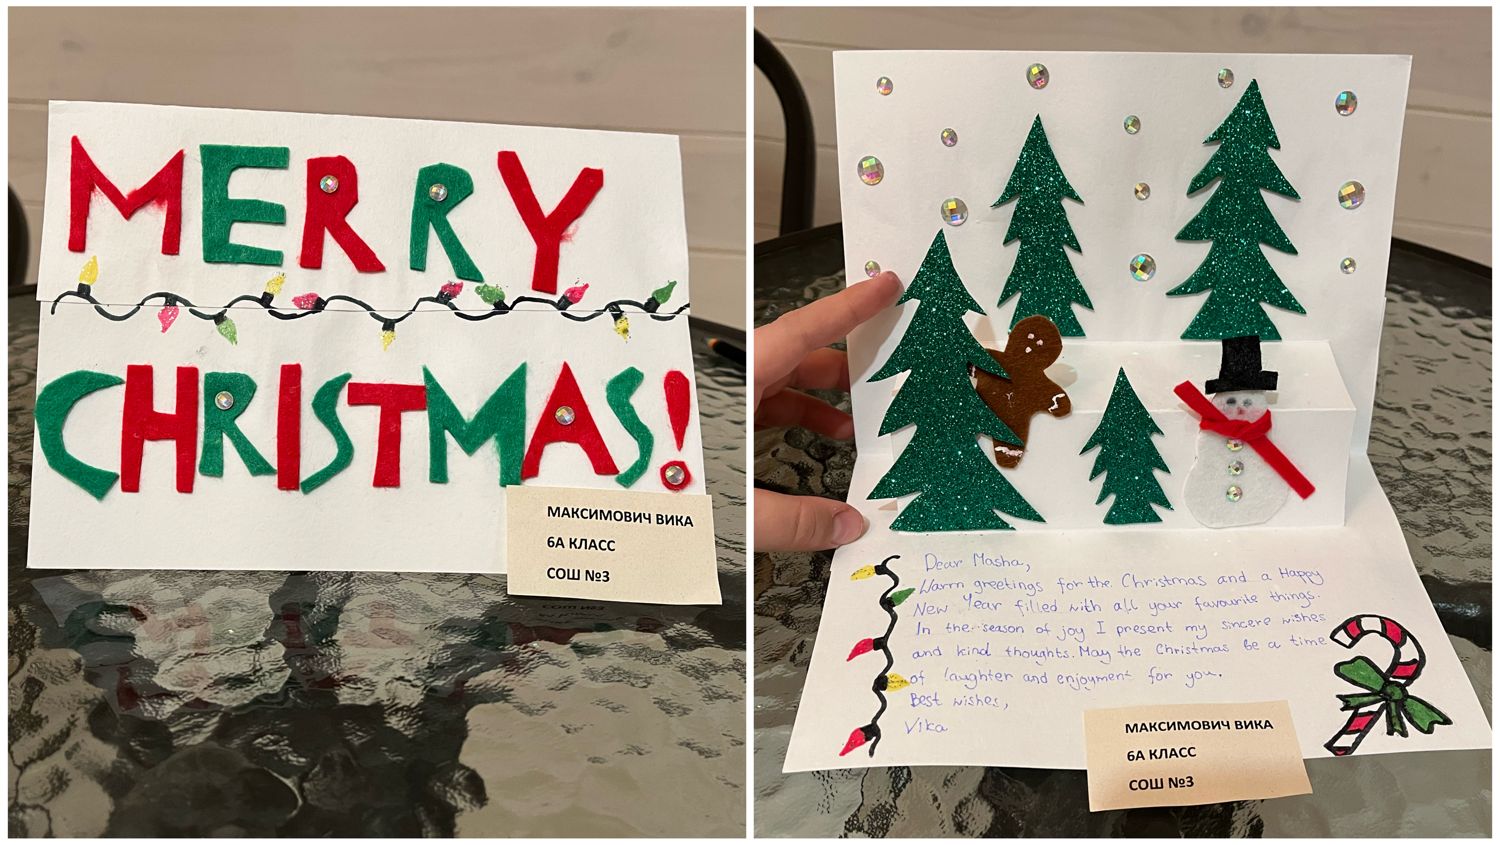 MERRY
CHRISTMAS!
МАКСИМОВИЧ ВИКА
6А КЛАСС
СОШ №3
Dear Masha,
Warm greetings for the Christmas and a Happy
New Year filled with all your favourite things.
In the season of joy I present my sincere wishes
and kind thoughts. May the Christmas be a time
of laughter and enjoyment for you.
Best wishes,
Vika
МАКСИМОВИЧ ВИКА
6А КЛАСС
СОШ №3